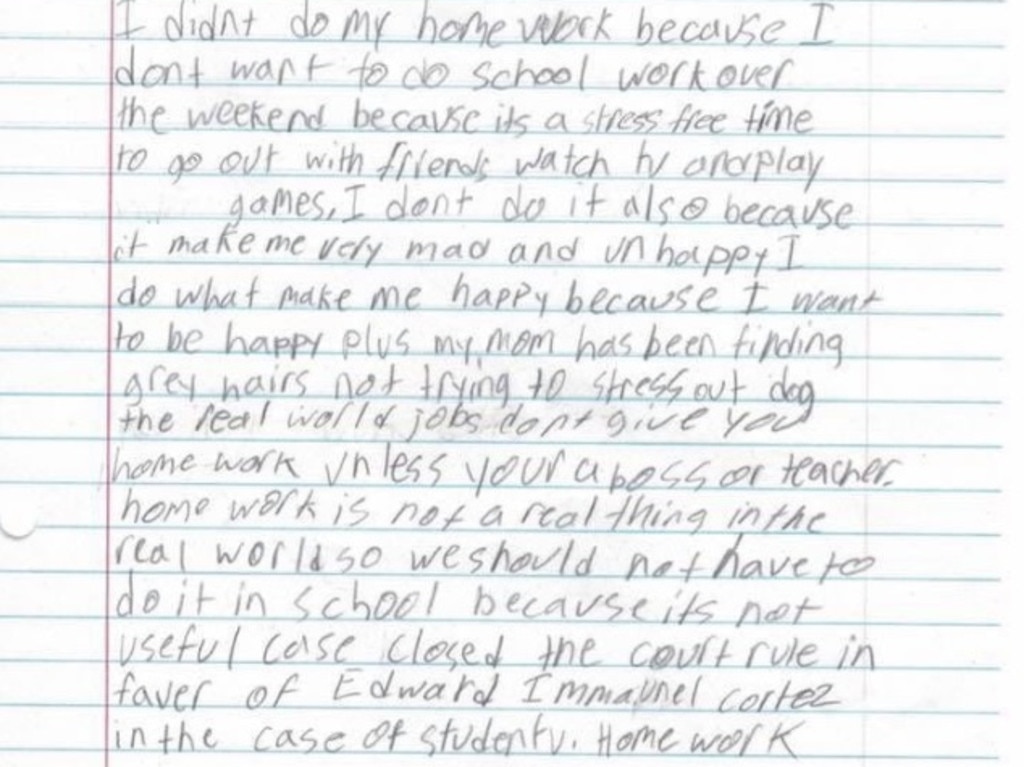 I didnt do my home work because I
dont want to do school work over
the weekend because its a stress free time
to go out with friends watch tv and play
games, I dont do it also because
it make me very mad and unhappy I
do what make me happy because I want
to be happy plus my mom has been finding
grey hairs not trying to stress out dog
the real world jobs dont give you
home work unless your a boss or teacher.
home work is not a real thing in the
real world so we should not have to
do it in school because its not
useful case closed the court rule in
faver of Edward Immaunel cortez
in the case of student v. Home work